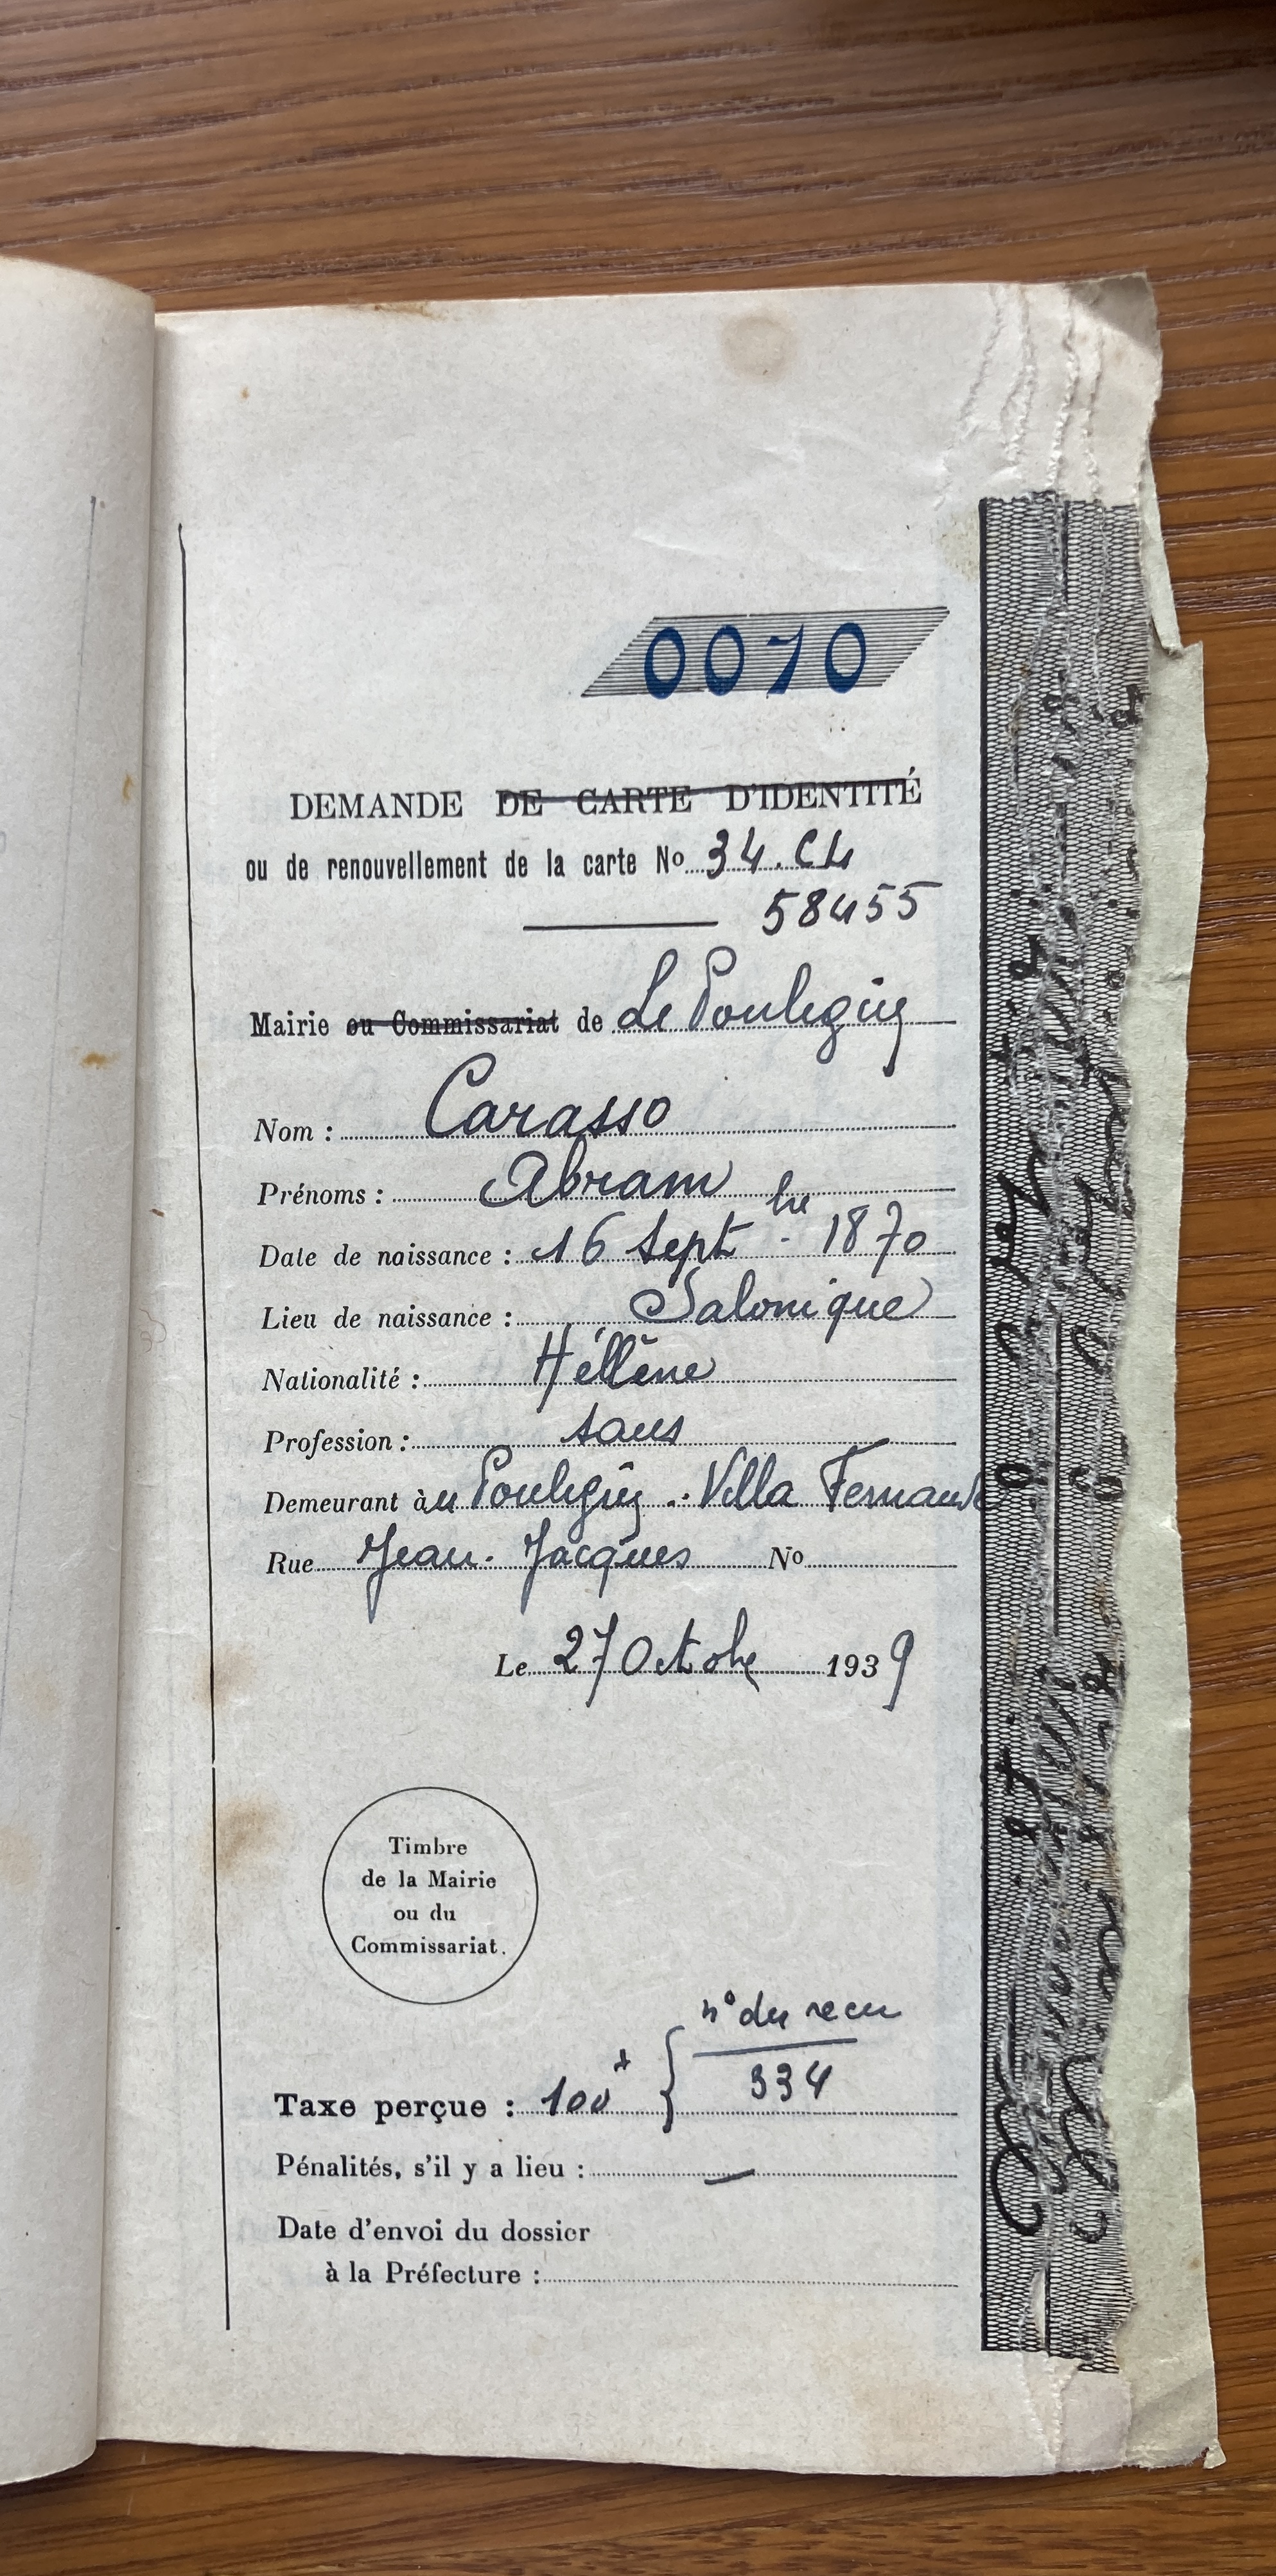 0070
DEMANDE DE CARTE D'IDENTITÉ
ou de renouvellement de la carte No 34.CL
58455
Mairie ou Commissariat de Le Pouliguen
Nom : Carasso
Prénoms : Abram
Date de naissance : 16 Sept bre 1870
Lieu de naissance : Salonique
Nationalité : Héllène
Profession : sans
Demeurant àu Pouliguen . Villa Fernande
Rue Jean-Jacques No
Le 27 Octobre 1939
Timbre
de la Mairie
ou du
Commissariat.
n° du recu
334
Taxe perçue : 100 f
Pénalités, s'il y a lieu : —
Date d'envoi du dossier
à la Préfecture :